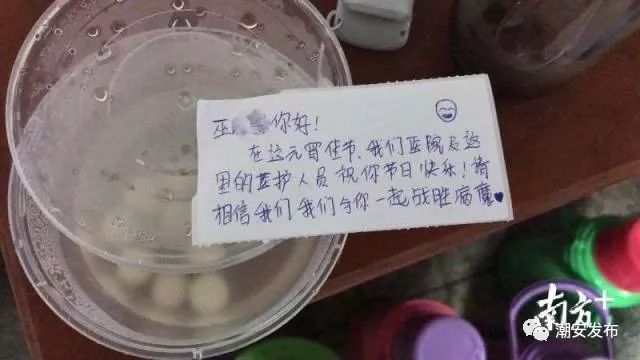 巫 你好!
在这元宵佳节,我们医院及这
里的医护人员祝你节日快乐!请
相信我们我们与你一起战胜病魔♥
南方+
潮安发布